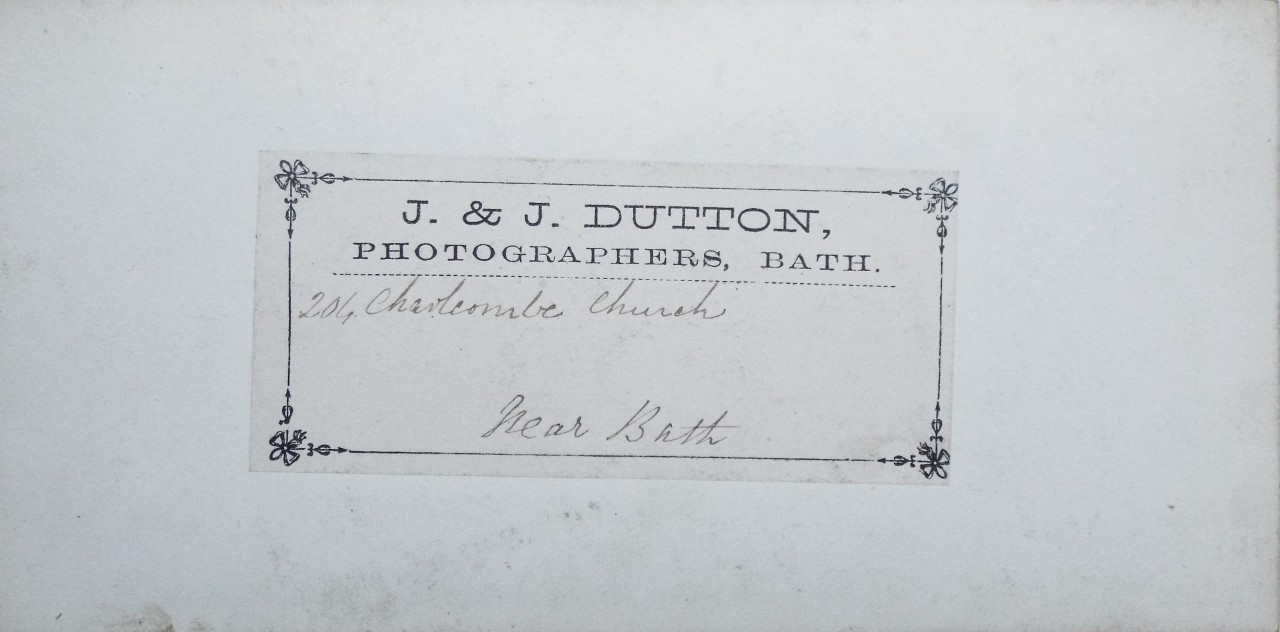 J. & J. DUTTON,
PHOTOGRAPHERS, BATH.
204, Charlcombe Church
Near Bath